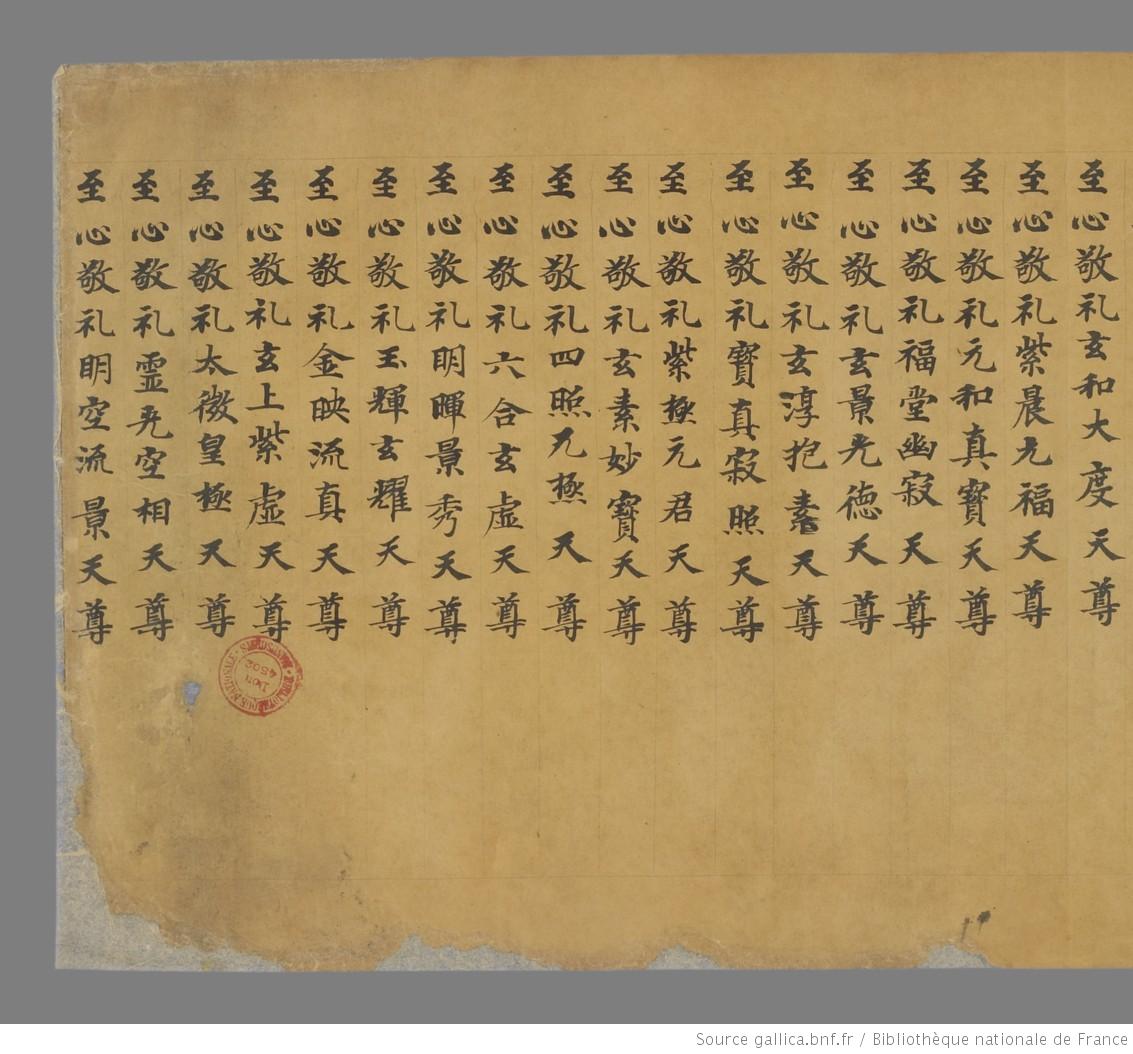 至心敬礼玄和大度天尊
至心敬礼紫晨九福天尊
至心敬礼元和真寶天尊
至心敬礼福堂幽寂天尊
至心敬礼玄景光徳天尊
至心敬礼玄淳抱素天尊
至心敬礼寶真寂照天尊
至心敬礼紫極元君天尊
至心敬礼玄素妙寶天尊
至心敬礼四照九極天尊
至心敬礼六合玄虛天尊
至心敬礼明暉景秀天尊
至心敬礼玉輝玄耀天尊
至心敬礼金映流真天尊
至心敬礼玄上紫虛天尊
至心敬礼太微皇極天尊
至心敬礼霊光空相天尊
至心敬礼明空流景天尊
BIBLIOTHEQUE NATIONALE MANUSCRITS
Don
4502
Source gallica.bnf.fr / Bibliothèque nationale de France